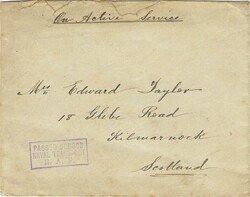 On Active Service
Mrs Edward Taylor
18 Glebe Road
Kilmarnock
Scotland
PASSED CENSOR